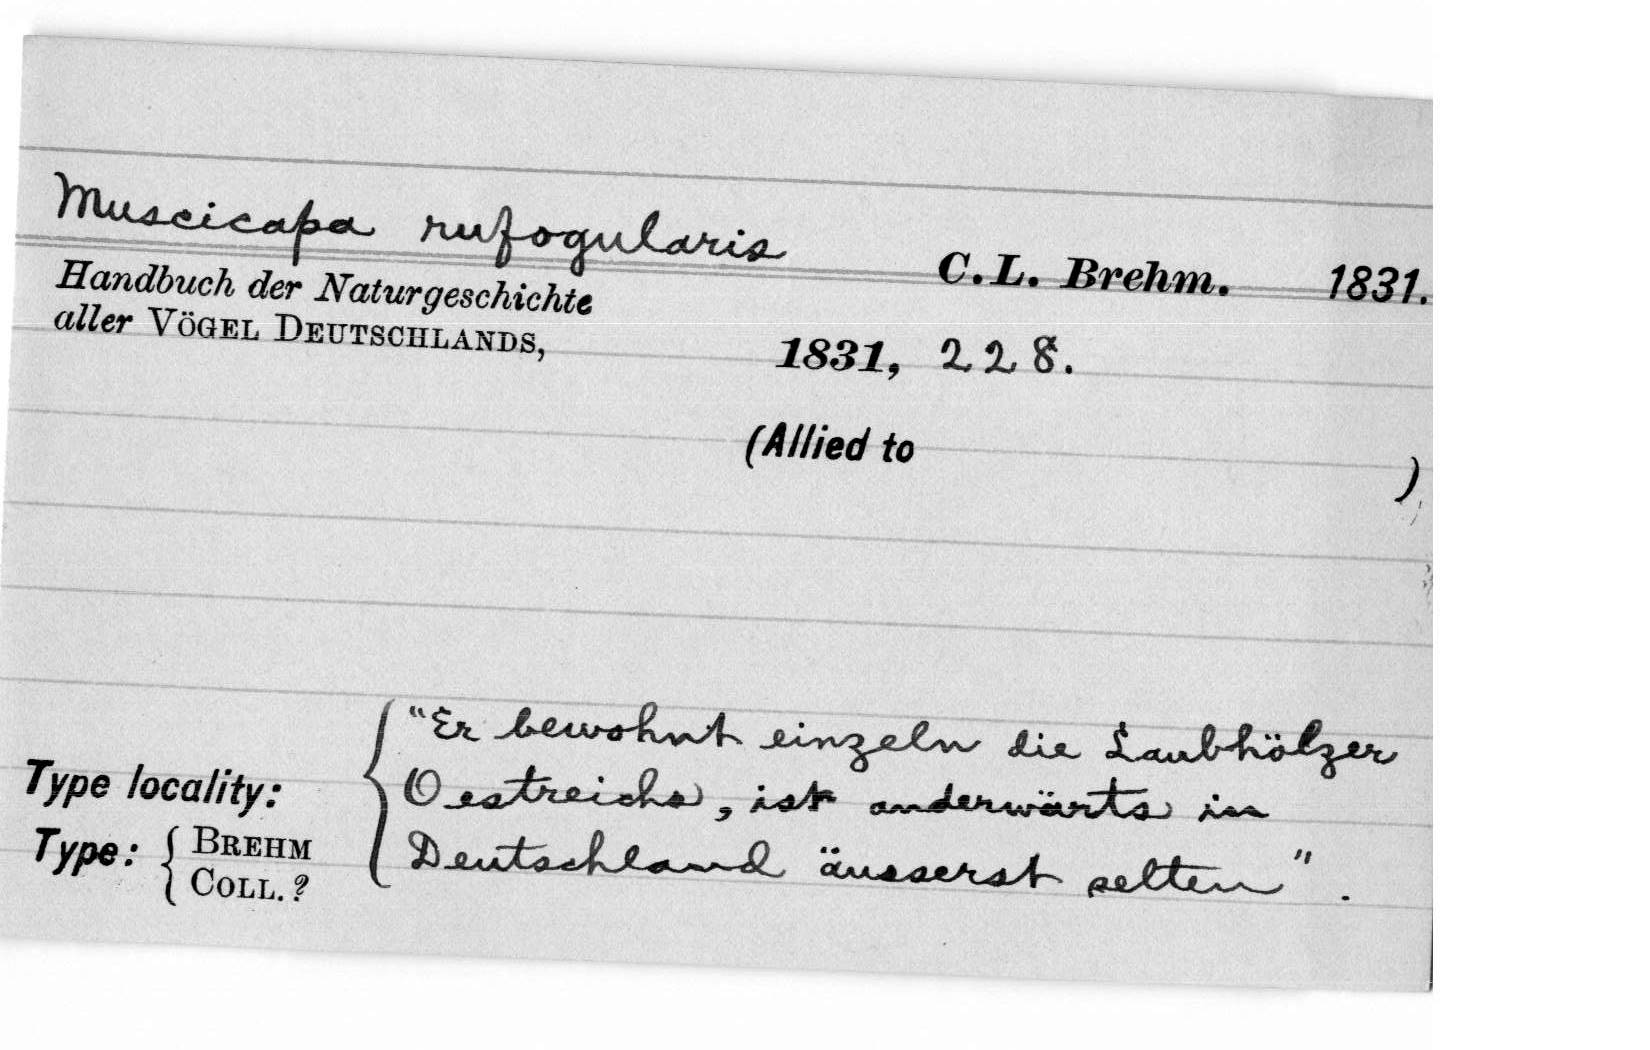 Muscicapa rufogularis C.L. Brehm. 1831.
Handbuch der Naturgeschichte
aller VÖGEL DEUTSCHLANDS, 1831, 228.
(Allied to )
"Er bewohnt einzeln die Laubhölzer
Type locality: Oestreichs, ist anderwärts in
Type: BREHM COLL.? Deutschland äusserst selten".